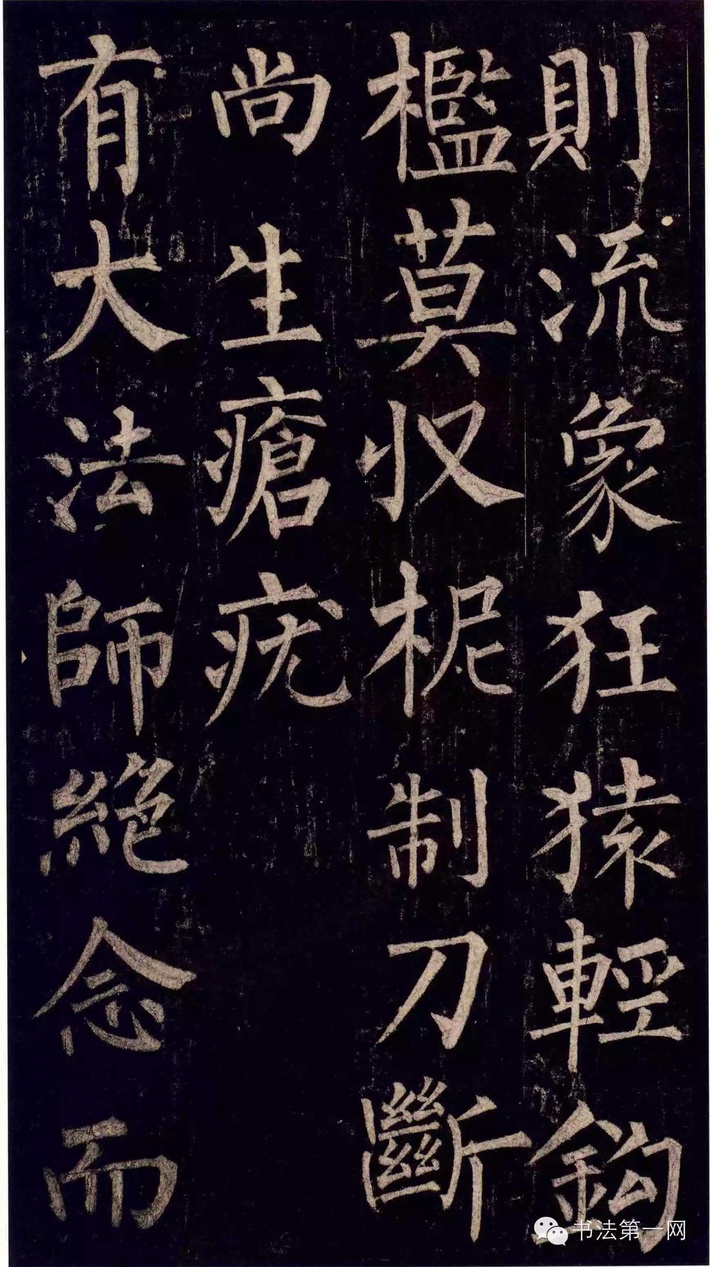 則流象狂猿輕鈎
檻莫収柅制刀斷
尚生瘡疣
有大法師絶念而
书法第一网